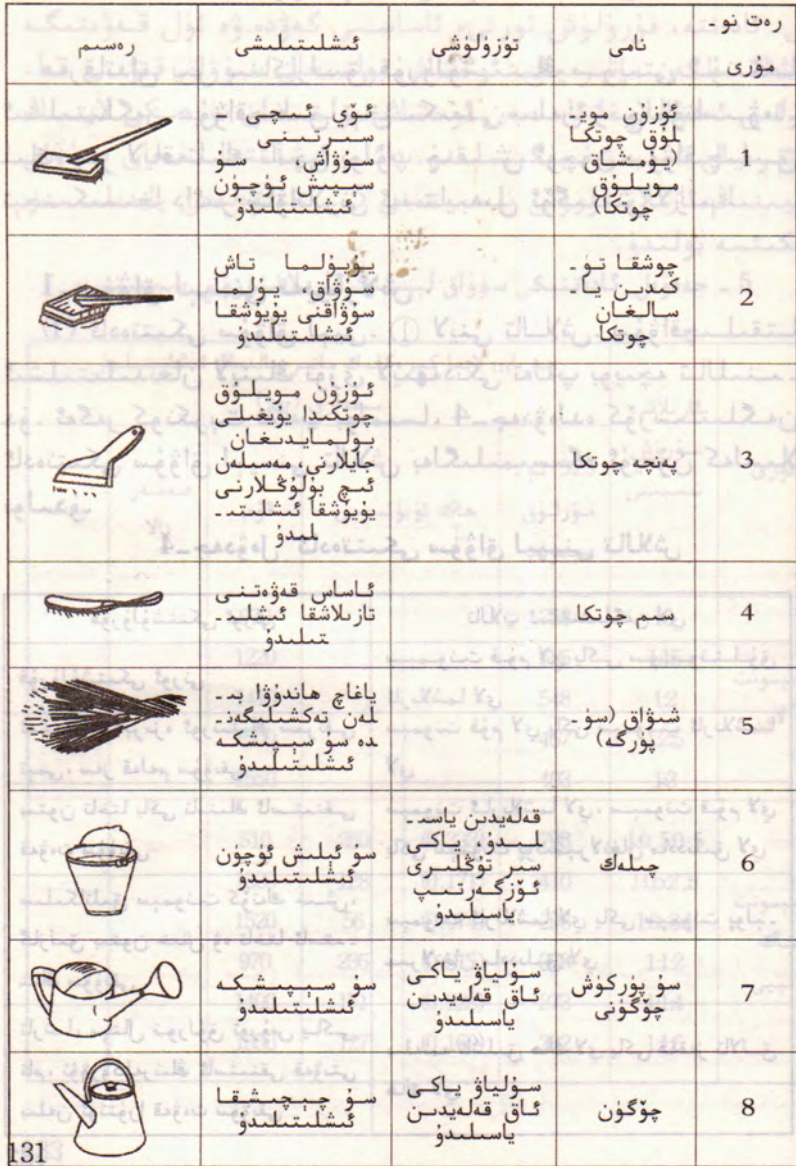 رەت نو-
مۇرى
نامى
تۈزۈلۈشى
ئىشلىتىلىشى
رەسىم
1
ئۇزۇن موي-
لۇق چوتكا
(يۇمشاق
مويلۇق
چوتكا)
ئۆي ئىچى -
سىرتىنى
سۇۋاش، سۇ
سېپىش ئۈچۈن
ئىشلىتىلىدۇ
2
چوشقا تۈ-
كىدىن يا-
سالغان
چوتكا
يۇيۇلما تاش
سۇۋاق، يۇلما
سۇۋاقنى يۇيۇشقا
ئىشلىتىلىدۇ
3
پەنچە چوتكا
ئۇزۇن مويلۇق
چوتكىدا يۇيغىلى
بولمايدىغان
جايلارنى، مەسىلەن
ئىچ بۇلۇڭلارنى
يۇيۇشقا ئىشلىتى-
لىدۇ
4
سىم چوتكا
ئاساس قەۋەتنى
تازىلاشقا ئىشلى-
تىلىدۇ
5
شىۋاق (سۇ-
پۈرگە)
ياغاچ ھاندۇۋا بى-
لەن تەكشىلىگەن-
دە سۇ سېپىشكە
ئىشلىتىلىدۇ
6
چىلەك
قەلەيدىن ياسى-
لىدۇ ياكى
سىر تۇڭلىرى
ئۆزگەرتىپ
ياسىلىدۇ
سۇ ئېلىش ئۈچۈن
ئىشلىتىلىدۇ
7
سۇ پۈركۈش
چۆگۈنى
سۇلياۋ ياكى
ئاق قەلەيدىن
ياسىلىدۇ
سۇ سېپىشكە
ئىشلىتىلىدۇ
8
چۆگۈن
سۇلياۋ ياكى
ئاق قەلەيدىن
ياسىلىدۇ
سۇ چېچىشقا
ئىشلىتىلىدۇ
131